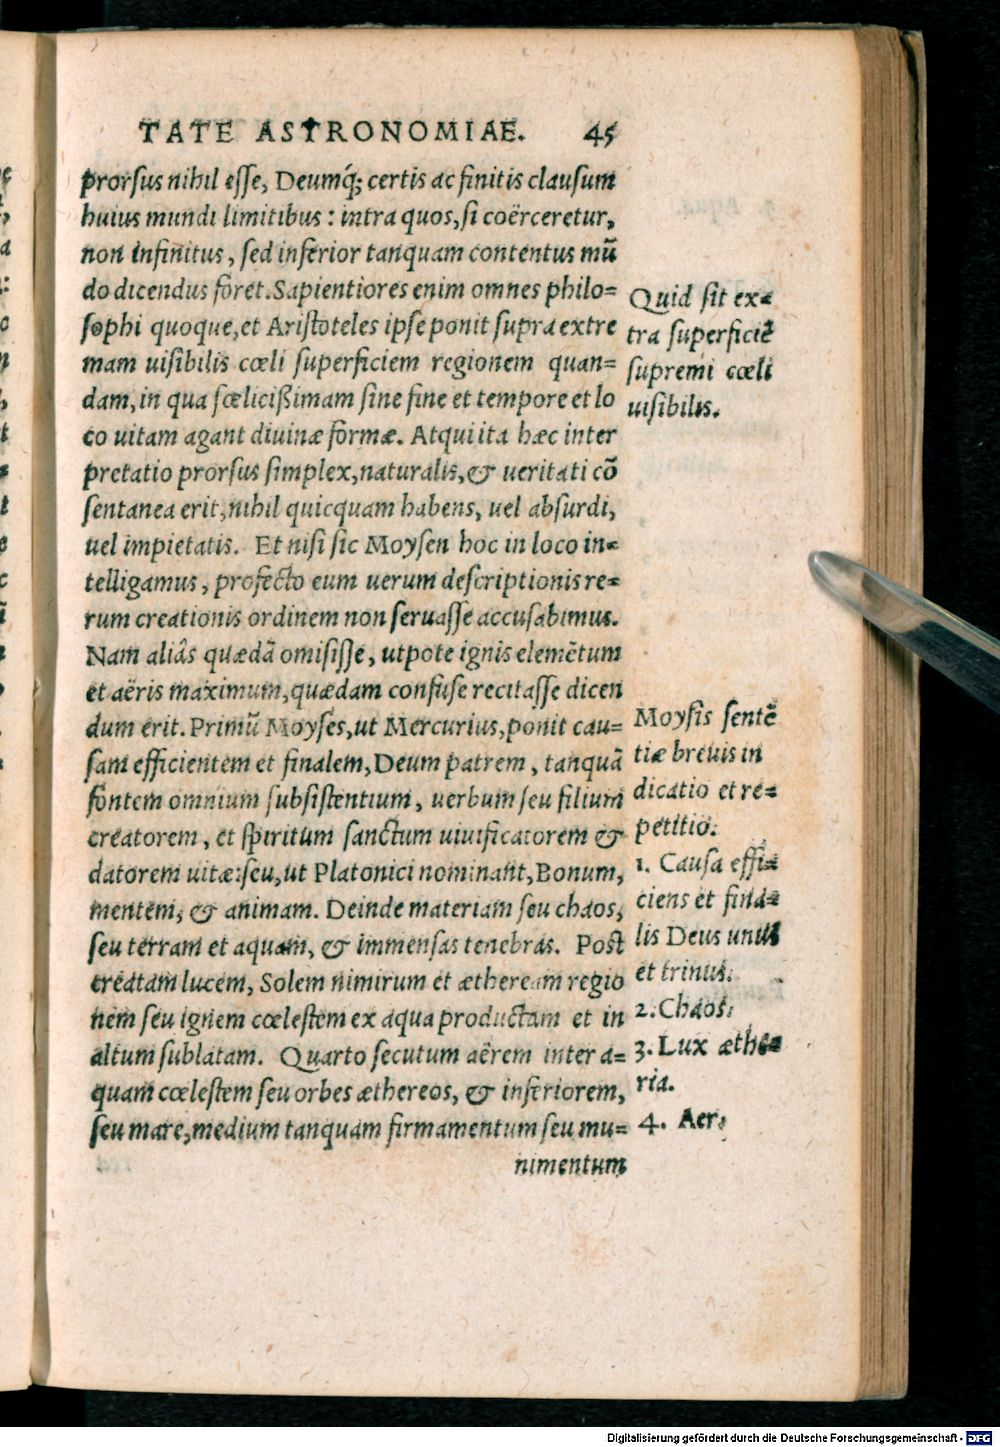 TATE ASTRONOMIAE. 45
prorsus nihil esse, Deumq́; certis ac finitis clausum
huius mundi limitibus: intra quos, si coërceretur,
non infinitus, sed inferior tanquam contentus mū
do dicendus foret. Sapientiores enim omnes philo=
sophi quoque, et Aristoteles ipse ponit supra extre
mam uisibilis cœli superficiem regionem quan=
dam, in qua fœlicißimam sine fine et tempore et lo
co uitam agant diuinæ formæ. Atqui ita hæc inter
pretatio prorsus simplex, naturalis, & ueritati cō
sentanea erit, nihil quicquam habens, uel absurdi,
uel impietatis. Et nisi sic Moysen hoc in loco in=
telligamus, profecto eum uerum descriptionis re=
rum creationis ordinem non seruasse accusabimus.
Nam aliâs quædā omisisse, utpote ignis elemētum
et aëris maximum, quædam confuse recitasse dicen
dum erit. Primū Moyses, ut Mercurius, ponit cau=
sam efficientem et finalem, Deum patrem, tanquā
fontem omnium subsistentium, uerbum seu filium
creatorem, et spiritum sanctum uiuificatorem &
datorem uitæ: seu, ut Platonici nominant, Bonum,
mentem, & animam. Deinde materiam seu chaos,
seu terram et aquam, & immensas tenebras. Post
creatam lucem, Solem nimirum et ætheream regio
nem seu ignem cœlestem ex aqua productam et in
altum sublatam. Quarto secutum aërem inter a=
quam cœlestem seu orbes æthereos, & inferiorem,
seu mare, medium tanquam firmamentum seu mu=
nimentum
Quid sit ex=
tra superficiē
supremi cœli
uisibilis.
Moysis sentē
tiæ breuis in
dicatio et re=
petitio.
1. Causa effi=
ciens et fina=
lis Deus unus
et trinus.
2. Chaos.
3. Lux æthe=
ria.
4. Aer.
Digitalisierung gefördert durch die Deutsche Forschungsgemeinschaft - DFG